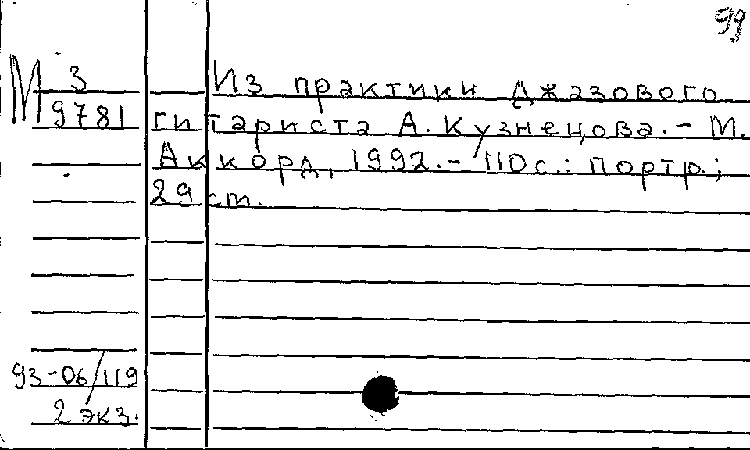 99
М 3
9781
Из практики джазового
гитариста А. Кузнецова. - М.
Аккорд, 1992. - 110 с.: портр.;
29 ст.
93-06/119
2 экз.